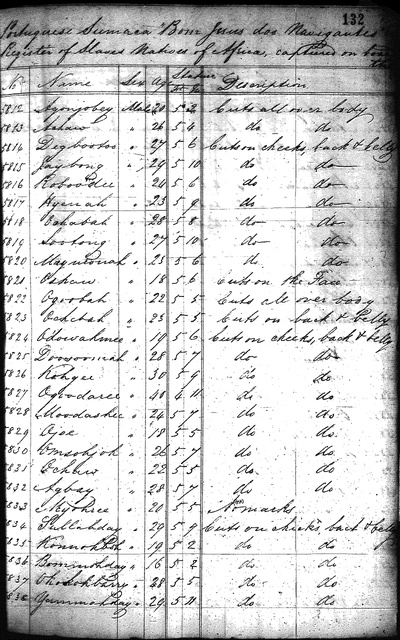 132
Portuguese Sumaca "Bom Jesus dos Navigantes"
Register of Slaves Natives of Africa, captured on
No Name Sex Age Stature Description
5812 Agonjobey Male 20 5 2 Cuts all over body
5813 " 26 5 4 do do
5814 Degbootoo " 27 5 6 Cuts on cheeks, back & belly
5815 Jaybong " 24 5 10 do do
5816 Koboodee " 24 5 6 do do
5817 Hyenah " 23 5 9 do do
5818 Echabah " 28 5 8 do do
5819 Sootong " 27 5 10 do do
5820 " 25 5 6 do do
5821 " 18 5 6 Cuts on the Face
5822 Ogootah " 22 5 5 Cuts all over body
5823 Ochetah " 25 5 5 Cuts on back & belly
5824 Odowahmee " 19 5 6 Cuts on cheeks, back & belly
5825 Doowoomah " 28 5 7 do do
5826 Kohgee " 30 5 9 do do
5827 Ogoodaree " 40 4 11 do do
5828 Moodashee " 24 5 7 do do
5829 Ajoe " 18 5 5 do do
5830 Omsohjoh " 26 5 7 do do
5831 Echaw " 22 5 5 do do
5832 Agbay " 28 5 7 do do
5833 " 20 5 5 No marks
5834 " 29 5 9 Cuts on cheeks, back & belly
5835 " 19 5 2 do do
5836 " 16 5 2 do do
5837 " 28 5 5 do do
5838 " 29 5 11 do do